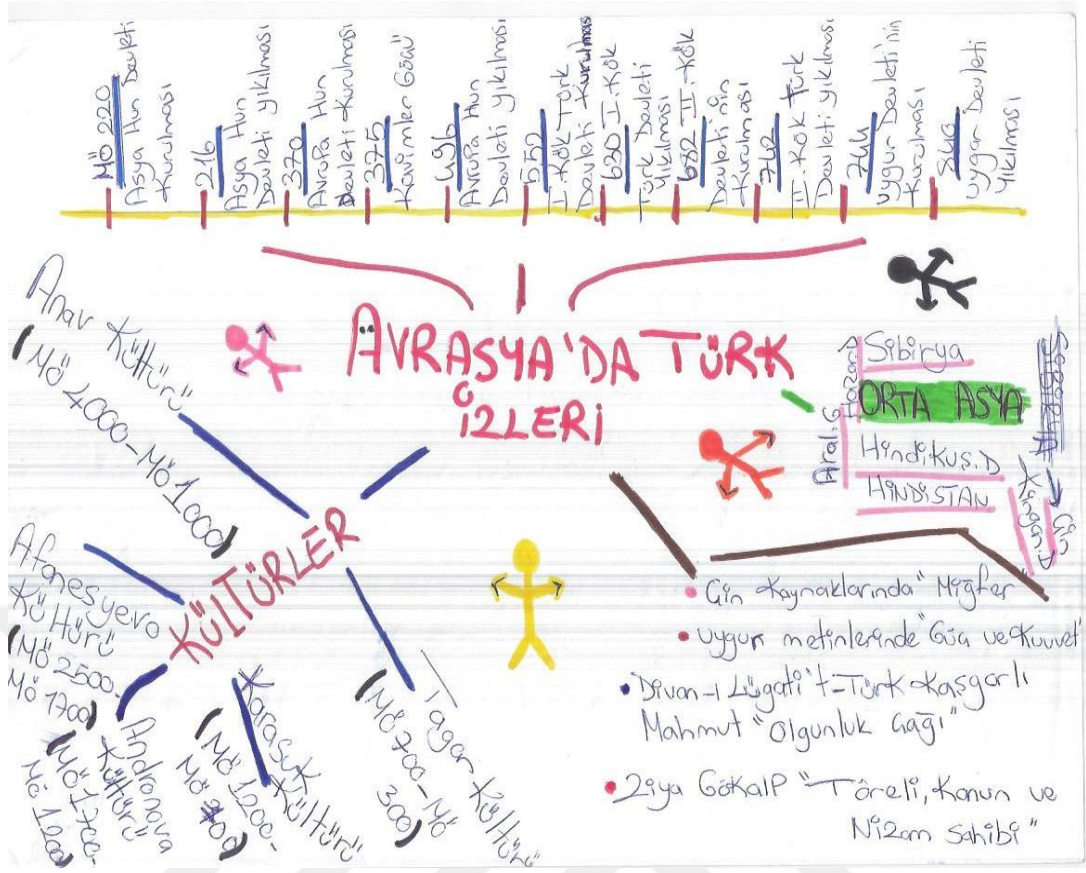 MÖ 220
Asya Hun Devleti
Kurulması
216
Asya Hun
Devleti yıkılması
370
Avrupa Hun
Devleti Kurulması
375
Kavimler Göçü
496
Avrupa Hun
Devleti yıkılması
552
I. Kök Türk
Devleti Kurulması
630 I. Kök
Türk Devleti
Yıkılması
682 II. Kök
Devleti'nin
Kurulması
742
II. Kök Türk
Devleti yıkılması
744
Uygur Devleti'nin
Kurulması
840
Uygur Devleti
Yıkılması
AVRASYA'DA TÜRK
İZLERİ
Sibirya
ORTA ASYA
Hindikuş.D
HİNDİSTAN
Aral.G
Hazar.D
Kingan.D
Çin
KÜLTÜRLER
Anav Kültürü
(MÖ 4000-MÖ 1000)
Afanesyevo
Kültürü
(MÖ 2500-
MÖ 1700)
Andronova
Kültürü
(MÖ 1700-
MÖ 1200)
Karasuk Kültürü
(MÖ 1200-
MÖ 700)
Tagar Kültürü
(MÖ 700-MÖ
300)
• Çin Kaynaklarında "Miğfer"
• Uygur metinlerinde "Güç ve Kuvvet"
• Divan-ı Lügati't-Türk Kaşgarlı
Mahmut "Olgunluk Çağı"
• Ziya GÖKALP "Töreli, Kanun ve
Nizam Sahibi"